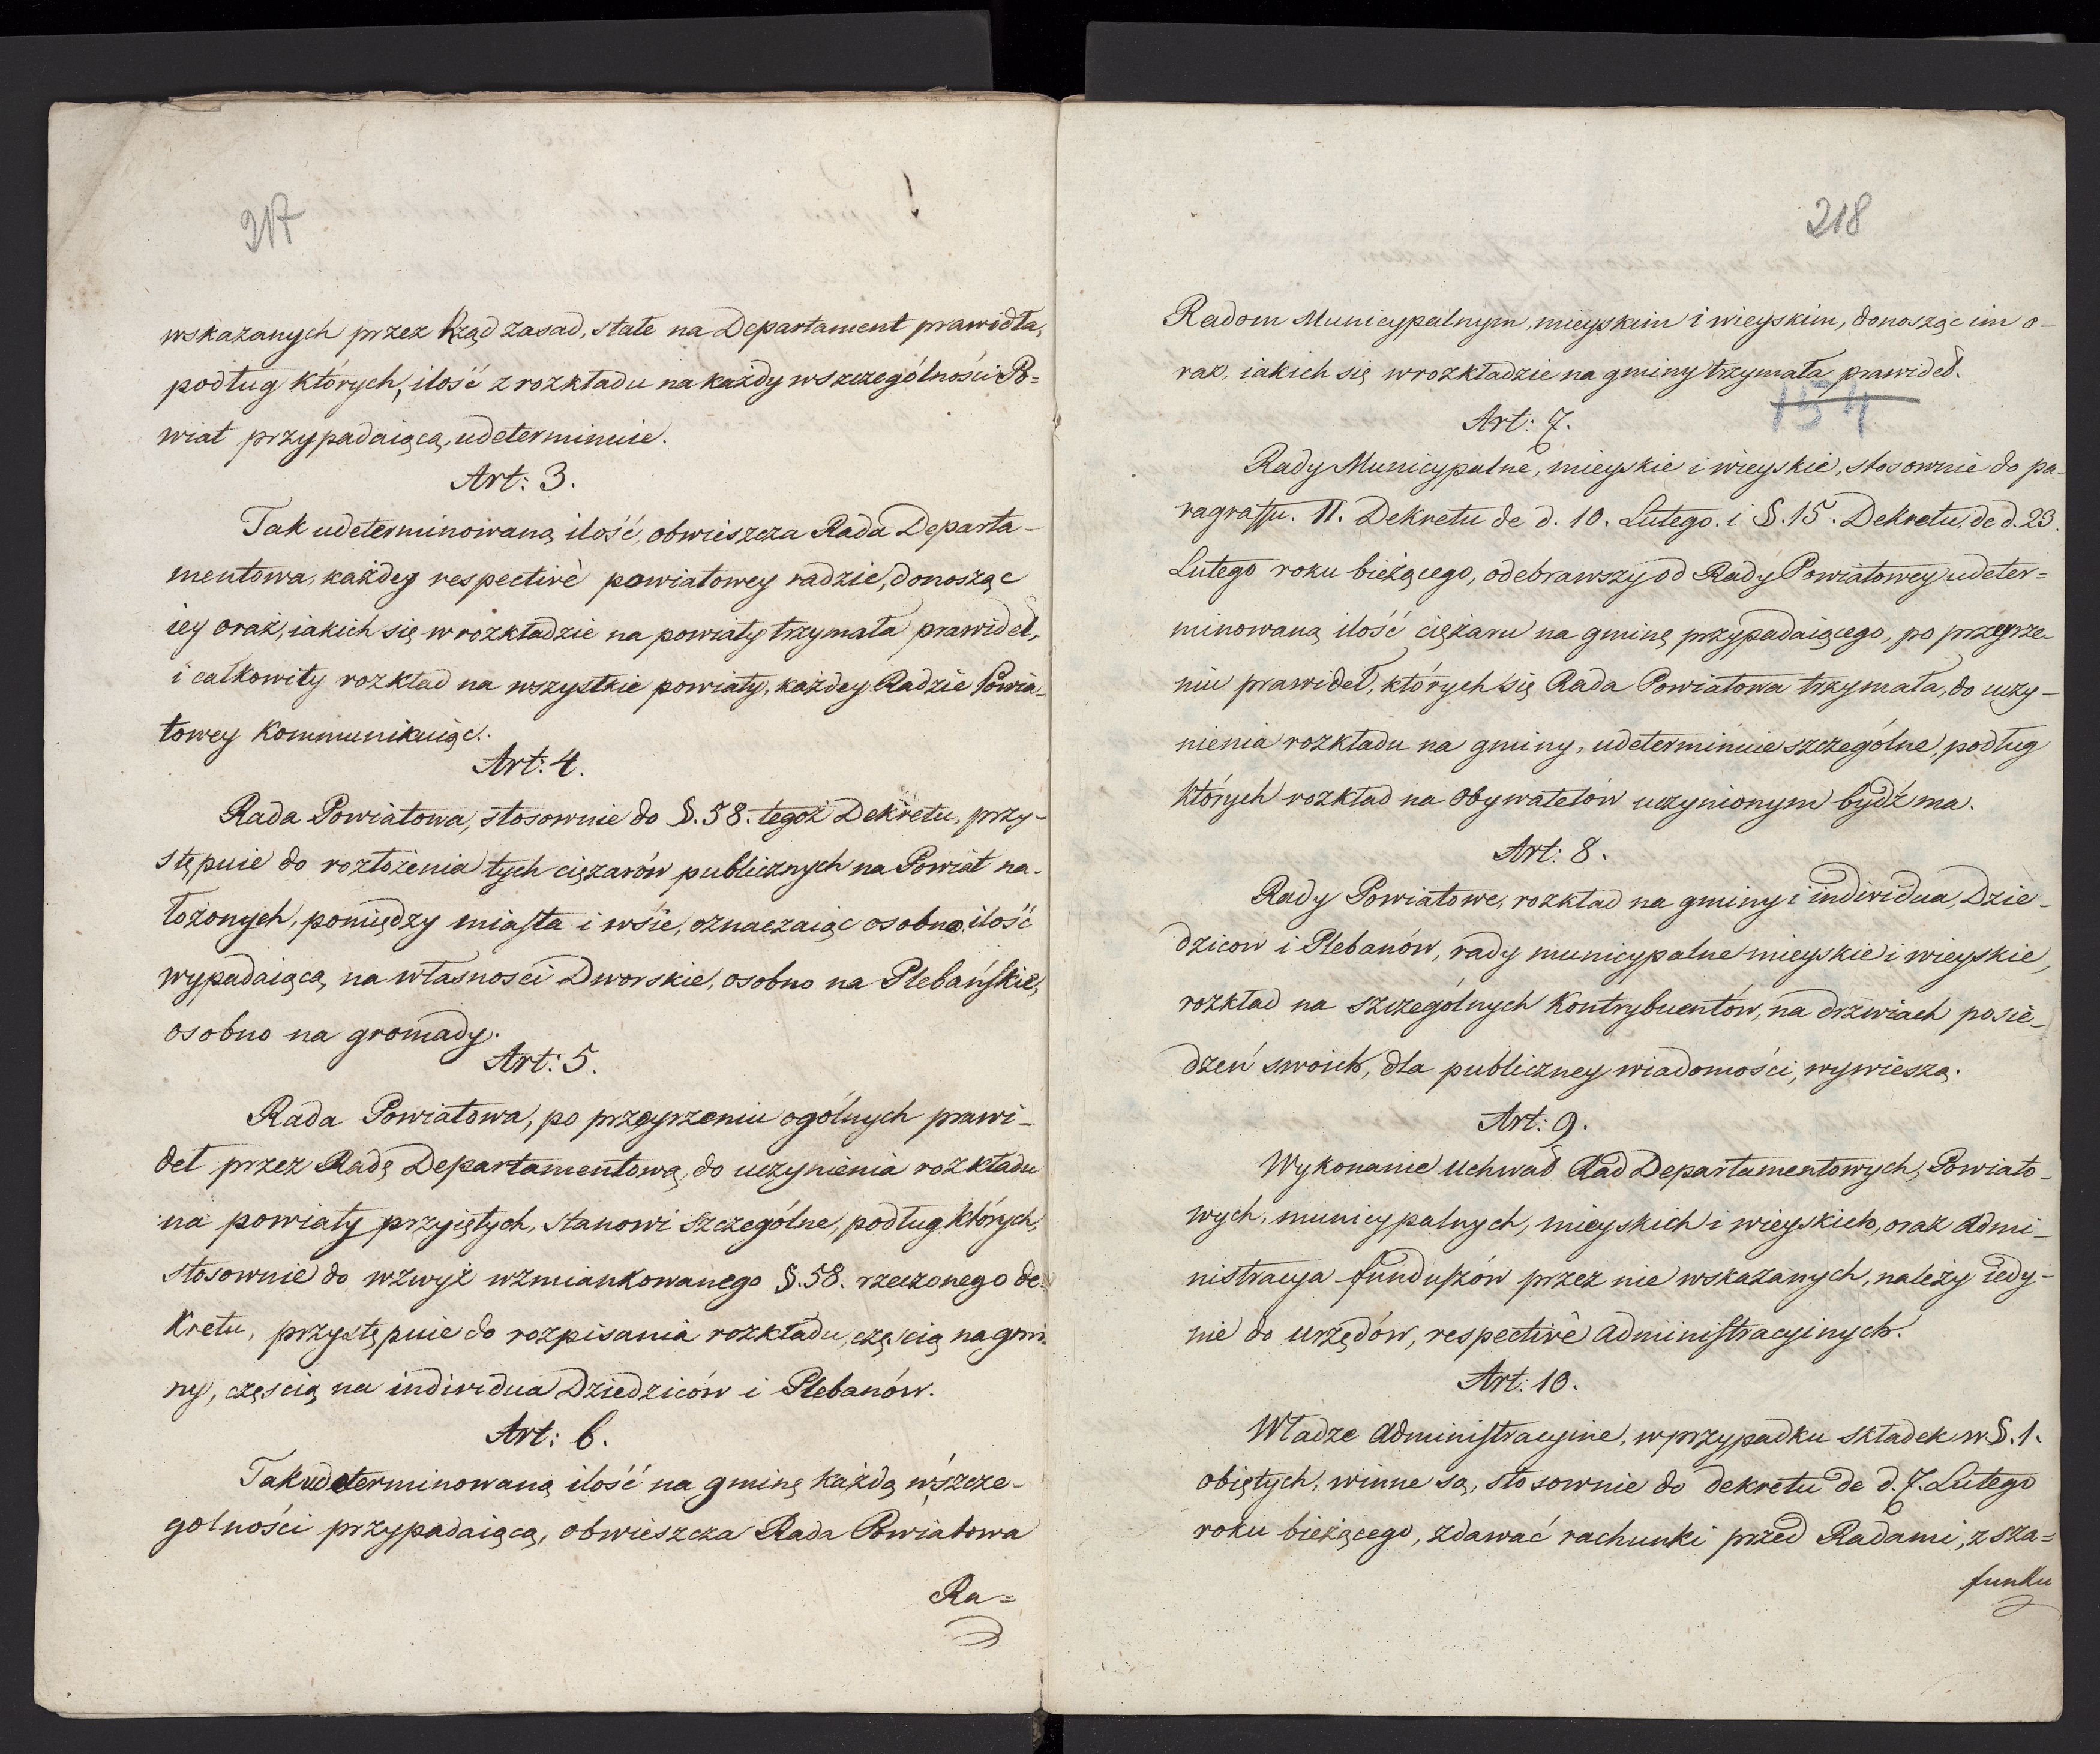 217
wskazanych przez Rząd zasad, stałe na Departament prawidła,
podług których, ilość z rozkładu na każdy wszczególności Po=
wiat przypadaiącą, udeterminuie.
Art: 3.
Tak udeterminowaną ilość, obwieszcza Rada Departa-
mentowa, każdey respectivè powiatowey radzie, donosząc
iey oraz, iakich się w rozkładzie na powiaty trzymała prawideł,
i całkowity rozkład na wszystkie powiaty, każdey Radzie Powia-
towey kommunikuiąc.
Art: 4.
Rada Powiatowa, stosownie do §. 58. tegoż Dekretu, przy-
stępuie do rozłożenia tych ciężarów publicznych na Powiat na-
łożonych, pomiędzy miasta i wsie, oznaczaiąc osobno, ilość
wypadaiącą, na własności Dworskie, osobno na Plebańskie,
osobno na gromady.
Art: 5.
Rada Powiatowa, po przeyrzeniu ogólnych prawi-
deł przez Radę Departamentową, do uczynienia rozkładu
na powiaty przyiętych, stanowi szczególne, podług których,
stosownie do wzwyż wzmiankowanego §. 58. rzeczonego de-
kretu, przystępuie do rozpisania rozkładu, częścią na gmi-
ny, częscią na individua Dziedziców i Plebanów.
Art: 6.
Tak udeterminowaną ilość na gminę każdą wszcze-
golności przypadaiącą, obwieszcza Rada Powiatowa
Ra=
218
Radom Municypalnym, mieyskim i wieyskim, donosząc im o-
raz, iakich się w rozkładzie na gminy trzymała prawideł.
154
Art: 7.
Rady Municypalne, mieyskie i wieyskie, stosownie do pa-
ragraffu. 11. Dekretu de d. 10. Lutego. i §. 15. Dekretu, de d. 23.
Lutego roku bieżącego, odebrawszy od Rady Powiatowey udeter=
minowaną ilość ciężaru na gminę przypadaiącego, po przeyrze-
niu prawideł, których się Rada Powiatowa trzymała, do uczy-
nienia rozkładu na gminy, udeterminuie szczególne, podług
których rozkład na Obywatelów uczynionym bydź ma.
Art: 8.
Rady Powiatowe, rozkład na gminy i individua, Dzie-
dziców i Plebanów, rady municypalne mieyskie i wieyskie,
rozkład na szczególnych Kontrybuentów, na drzwiach posie-
dzeń swoich, dla publiczney wiadomości, wywieszą.
Art: 9.
Wykonanie Uchwał Rad Departamentowych, Powiato-
wych, municypalnych, mieyskich i wieyskich, oraz Admi-
nistracya funduszów przez nie wskazanych, należy iedy-
nie do urzędów, respectivè Administracyinych.
Art: 10.
Władze Administracyine, w przypadku składek w §. 1.
obiętych, winne są, stosownie do dekretu de d. 7. Lutego
roku bieżącego, zdawać rachunki przed Radami, z sza=
funku